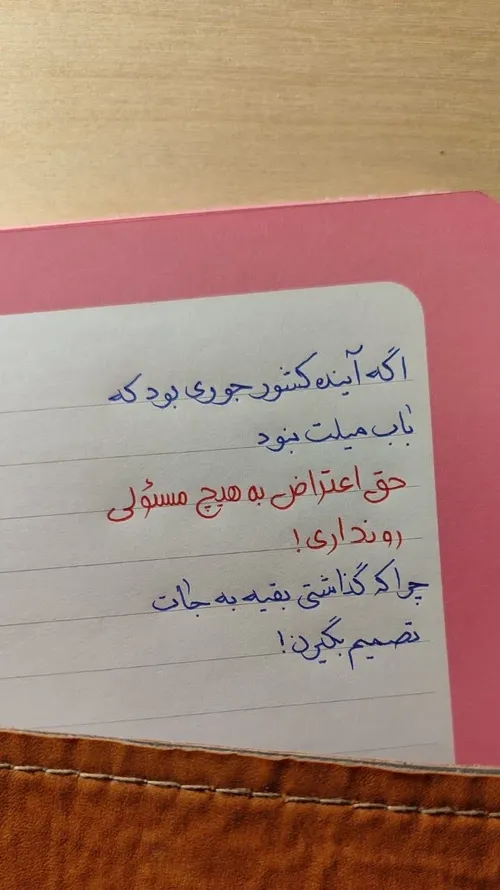 اگه آینده کشور جوری بود که
باب میلت نبود
حق اعتراض به هیچ مسؤلی
رو نداری!
چرا که گذاشتی بقیه به جات
تصمیم بگیرن!